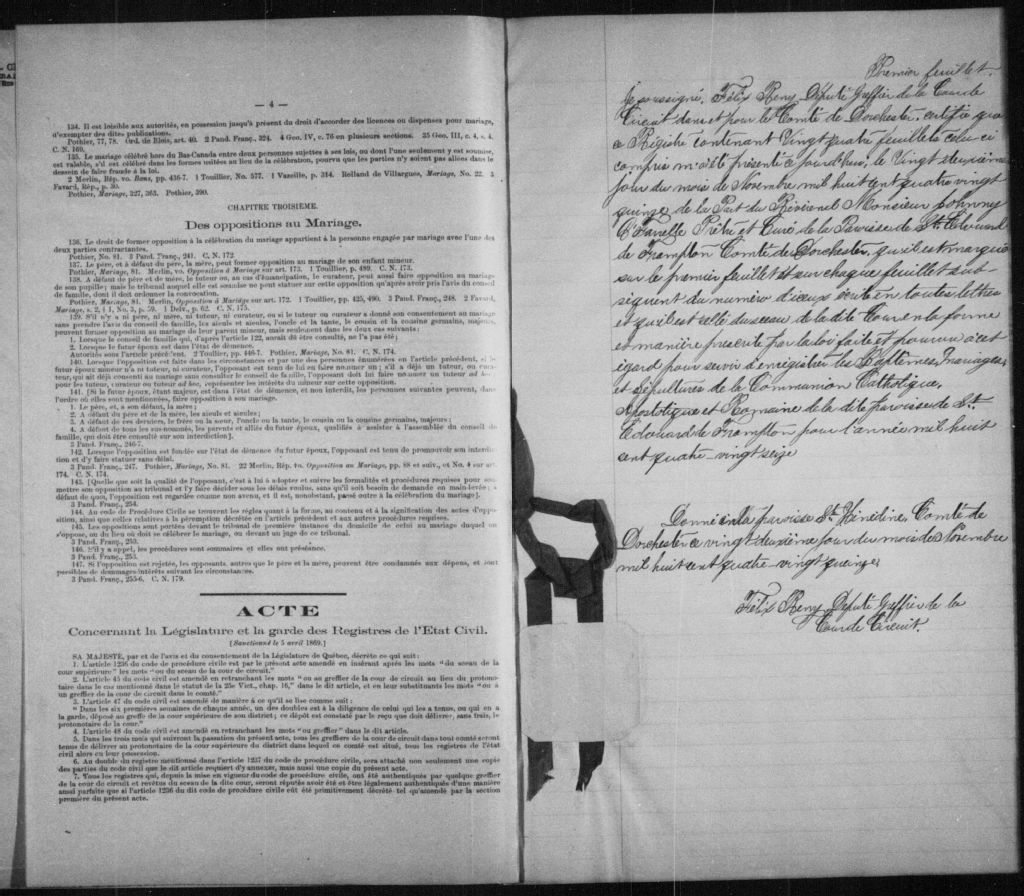 — 4 —
134. Il est loisible aux autorités, en possession jusqu'à présent du droit d'accorder des licences ou dispenses pour mariage,
d'exempter des dites publications.
Pothier, 77, 78. Ord. de Blois, art. 40. 2 Pand. Franç., 324. 4 Geo. IV, c. 76 en plusieurs sections. 35 Geo. III, c. 4, s. 4.
C. N. 169.
135. Le mariage célébré hors du Bas-Canada entre deux personnes sujettes à ses lois, ou dont l'une seulement y est soumise,
est valable, s'il est célébré dans les formes usitées au lieu de la célébration, pourvu que les parties n'y soient pas allées dans le
dessein de faire fraude à la loi.
2 Merlin, Rép. vo. Bans, pp. 436-7. 1 Touillier, No. 577. 1 Vazeille, p. 314. Rolland de Villargues, Mariage, No. 22. 5
Favard, Rép., p. 30.
Pothier, Mariage, 327, 363. Pothier, 390.
CHAPITRE TROISIEME.
Des oppositions au Mariage.
136. Le droit de former opposition à la célébration du mariage appartient à la personne engagée par mariage avec l'une des
deux parties contractantes.
Pothier, No. 81. 3 Pand. Franç., 241. C. N. 172.
137. Le père, et à défaut du père, la mère, peut former opposition au mariage de son enfant mineur.
Pothier, Mariage, 81. Merlin, vo. Opposition à Mariage sur art. 173. 1 Touillier, p. 489. C. N. 173.
138. A défaut de père et de mère, le tuteur ou, au cas d'émancipation, le curateur, peut aussi faire opposition au mariage
de son pupille; mais le tribunal auquel elle est soumise ne peut statuer sur cette opposition qu'après avoir pris l'avis du conseil
de famille, dont il doit ordonner la convocation.
Pothier, Mariage, 81. Merlin, Opposition à Mariage sur art. 172. 1 Touillier, pp. 425, 490. 3 Pand. Franç., 248. 2 Favard,
Mariage, s. 2, § 1, No. 3, p. 59. 1 Delv., p. 62. C. N. 175.
139. S'il n'y a ni père, ni mère, ni tuteur, ni curateur, ou si le tuteur ou curateur a donné son consentement au mariage
sans prendre l'avis du conseil de famille, les aïeuls et aïeules, l'oncle et la tante, le cousin et la cousine germains, majeurs,
peuvent former opposition au mariage de leur parent mineur, mais seulement dans les deux cas suivants:
1. Lorsque le conseil de famille qui, d'après l'article 122, aurait dû être consulté, ne l'a pas été;
2. Lorsque le futur époux est dans l'état de démence.
Autorités sous l'article précédent. 2 Touillier, pp. 446-7. Pothier, Mariage, No. 81. C. N. 174.
140. Lorsque l'opposition est faite dans les circonstances et par une des personnes énumérées en l'article précédent, si le
futur époux mineur n'a ni tuteur, ni curateur, l'opposant est tenu de lui en faire nommer un; s'il a déjà un tuteur, ou cura-
teur, qui ait déjà consenti au mariage sans consulter le conseil de famille, l'opposant doit lui faire nommer un tuteur ad hoc,
pour les tuteur, curateur ou tuteur ad hoc, représenter les intérêts du mineur sur cette opposition.
141. [Si le futur époux, étant majeur, est dans l'état de démence, et non interdit, les personnes suivantes peuvent, dans
l'ordre où elles sont mentionnées, faire opposition à son mariage.
1. Le père, et, à son défaut, la mère;
2. A défaut du père et de la mère, les aïeuls et aïeules;
3. A défaut de ces derniers, le frère ou la sœur, l'oncle ou la tante, le cousin ou la cousine germains, majeurs;
4. A défaut de tous les sus-nommés, les parents et alliés du futur époux, qualifiés à assister à l'assemblée du conseil de
famille, qui doit être consulté sur son interdiction].
3 Pand. Franç., 246-7.
142. Lorsque l'opposition est fondée sur l'état de démence du futur époux, l'opposant est tenu de promouvoir son interdic-
tion et d'y faire statuer sans délai.
3 Pand. Franç., 247. Pothier, Mariage, No. 81. 22 Merlin, Rép. vo. Opposition au Mariage, pp. 88 et suiv., et No. 4 sur art.
174. C. N. 174.
143. [Quelle que soit la qualité de l'opposant, c'est à lui à adopter et suivre les formalités et procédures requises pour sou-
mettre son opposition au tribunal et l'y faire décider sous les délais voulus, sans qu'il soit besoin de demande en main-levée; à
défaut de quoi, l'opposition est regardée comme non avenu, et il est, nonobstant, passé outre à la célébration du mariage].
3 Pand. Franç., 254.
144. Au code de Procédure Civile se trouvent les règles quant à la forme, au contenu et à la signification des actes d'oppo-
sition, ainsi que celles relatives à la péremption décrétée en l'article précédent et aux autres procédures requises.
145. Les oppositions sont portées devant le tribunal de première instance du domicile de celui au mariage duquel on
s'oppose, ou du lieu où doit se célébrer le mariage, ou devant un juge de ce tribunal.
3 Pand. Franç., 253.
146. S'il y a appel, les procédures sont sommaires et elles ont préséance.
3 Pand. Franç., 253.
147. Si l'opposition est rejetée, les opposants, autres que le père et la mère, peuvent être condamnés aux dépens, et sont
possibles de dommages-intérêts suivant les circonstances.
3 Pand. Franç., 255-6. C. N. 179.
ACTE
Concernant la Législature et la garde des Registres de l'Etat Civil.
[Sanctionné le 5 avril 1869.]
SA MAJESTÉ, par et de l'avis et du consentement de la Législature de Québec, décrète ce qui suit:
1. L'article 1236 du code de procédure civile est par le présent acte amendé en insérant après les mots "du sceau de la
cour supérieure" les mots "ou du sceau de la cour de circuit."
2. L'article 45 du code civil est amendé en retranchant les mots "ou au greffier de la cour de circuit au lieu du protono-
taire dans le cas mentionné dans le statut de la 25e Vict., chap. 16," dans le dit article, et en leur substituants les mots "ou à
un greffier de la cour de circuit dans le comté."
3. L'article 47 du code civil est amendé de manière à ce qu'il se lise comme suit:
"Dans les six premières semaines de chaque année, un des doubles est à la diligence de celui qui les a tenus, ou qui en a
la garde, déposé au greffe de la cour supérieure de son district; ce dépôt est constaté par le reçu que doit délivrer, sans frais, le
protonotaire de la cour."
4. L'article 48 du code civil est amendé en retranchant les mots "ou greffier" dans le dit article.
5. Dans les trois mois qui suivront la passation du présent acte, tous les greffiers de la cour de circuit dans tout comté seront
tenus de délivrer au protonotaire de la cour supérieure du district dans lequel ce comté est situé, tous les registres de l'état
civil alors en leur possession.
6. Au double du registre mentionné dans l'article 1237 du code de procédure civile, sera attaché non seulement une copie
des parties du code civil que le dit article requiert d'y annexer, mais aussi une copie du présent acte.
7. Tous les registres qui, depuis la mise en vigueur du code de procédure civile, ont été authentiqués par quelque greffier
de la cour de circuit et revêtus du sceau de la dite cour, seront réputés avoir été et être légalement authentiqués d'une manière
aussi parfaite que si l'article 1236 du dit code de procédure civile eût été primitivement décrété tel qu'amendé par la section
première du présent acte.
Premier feuillet.
Je soussigné, Félix Remy Député Greffier de la Cour de
Circuit dans et pour le Comté de Dorchester, certifie que
ce Régistre contenant Vingt quatre feuillets celui ci
compris m'a été présenté ce jourd'hui, le Vingt deuxième
jour du mois de Novembre mil huit cent quatre vingt
quinze, de la Part du Révérend Monsieur Johnny
Prêtre et Curé de la Paroisse de St. Edouard
de Frampton Comté de Dorchester, qu'il est marqué
sur le premier feuillet et sur chaque feuillet sub-
séquent du numéro d'iceux écrit en toutes lettres
et qu'il est scellé du sceau de la dite Cour en la forme
et manière prescrite par la loi faite et pourvue à cet
égard pour servir d'enregistrer les Baptêmes, Mariages,
et Sépultures de la Communion Catholique,
Apostolique et Romaine de la dite paroisse de St.
Edouard de Frampton pour l'année mil huit
cent quatre-vingt seize
Donné en la paroisse St. Hénédine, Comté de
Dorchester ce vingt deuxième jour du mois de Novembre
mil huit cent quatre vingt quinze.
Félix Remy Député Greffier de la
Cour de Circuit.